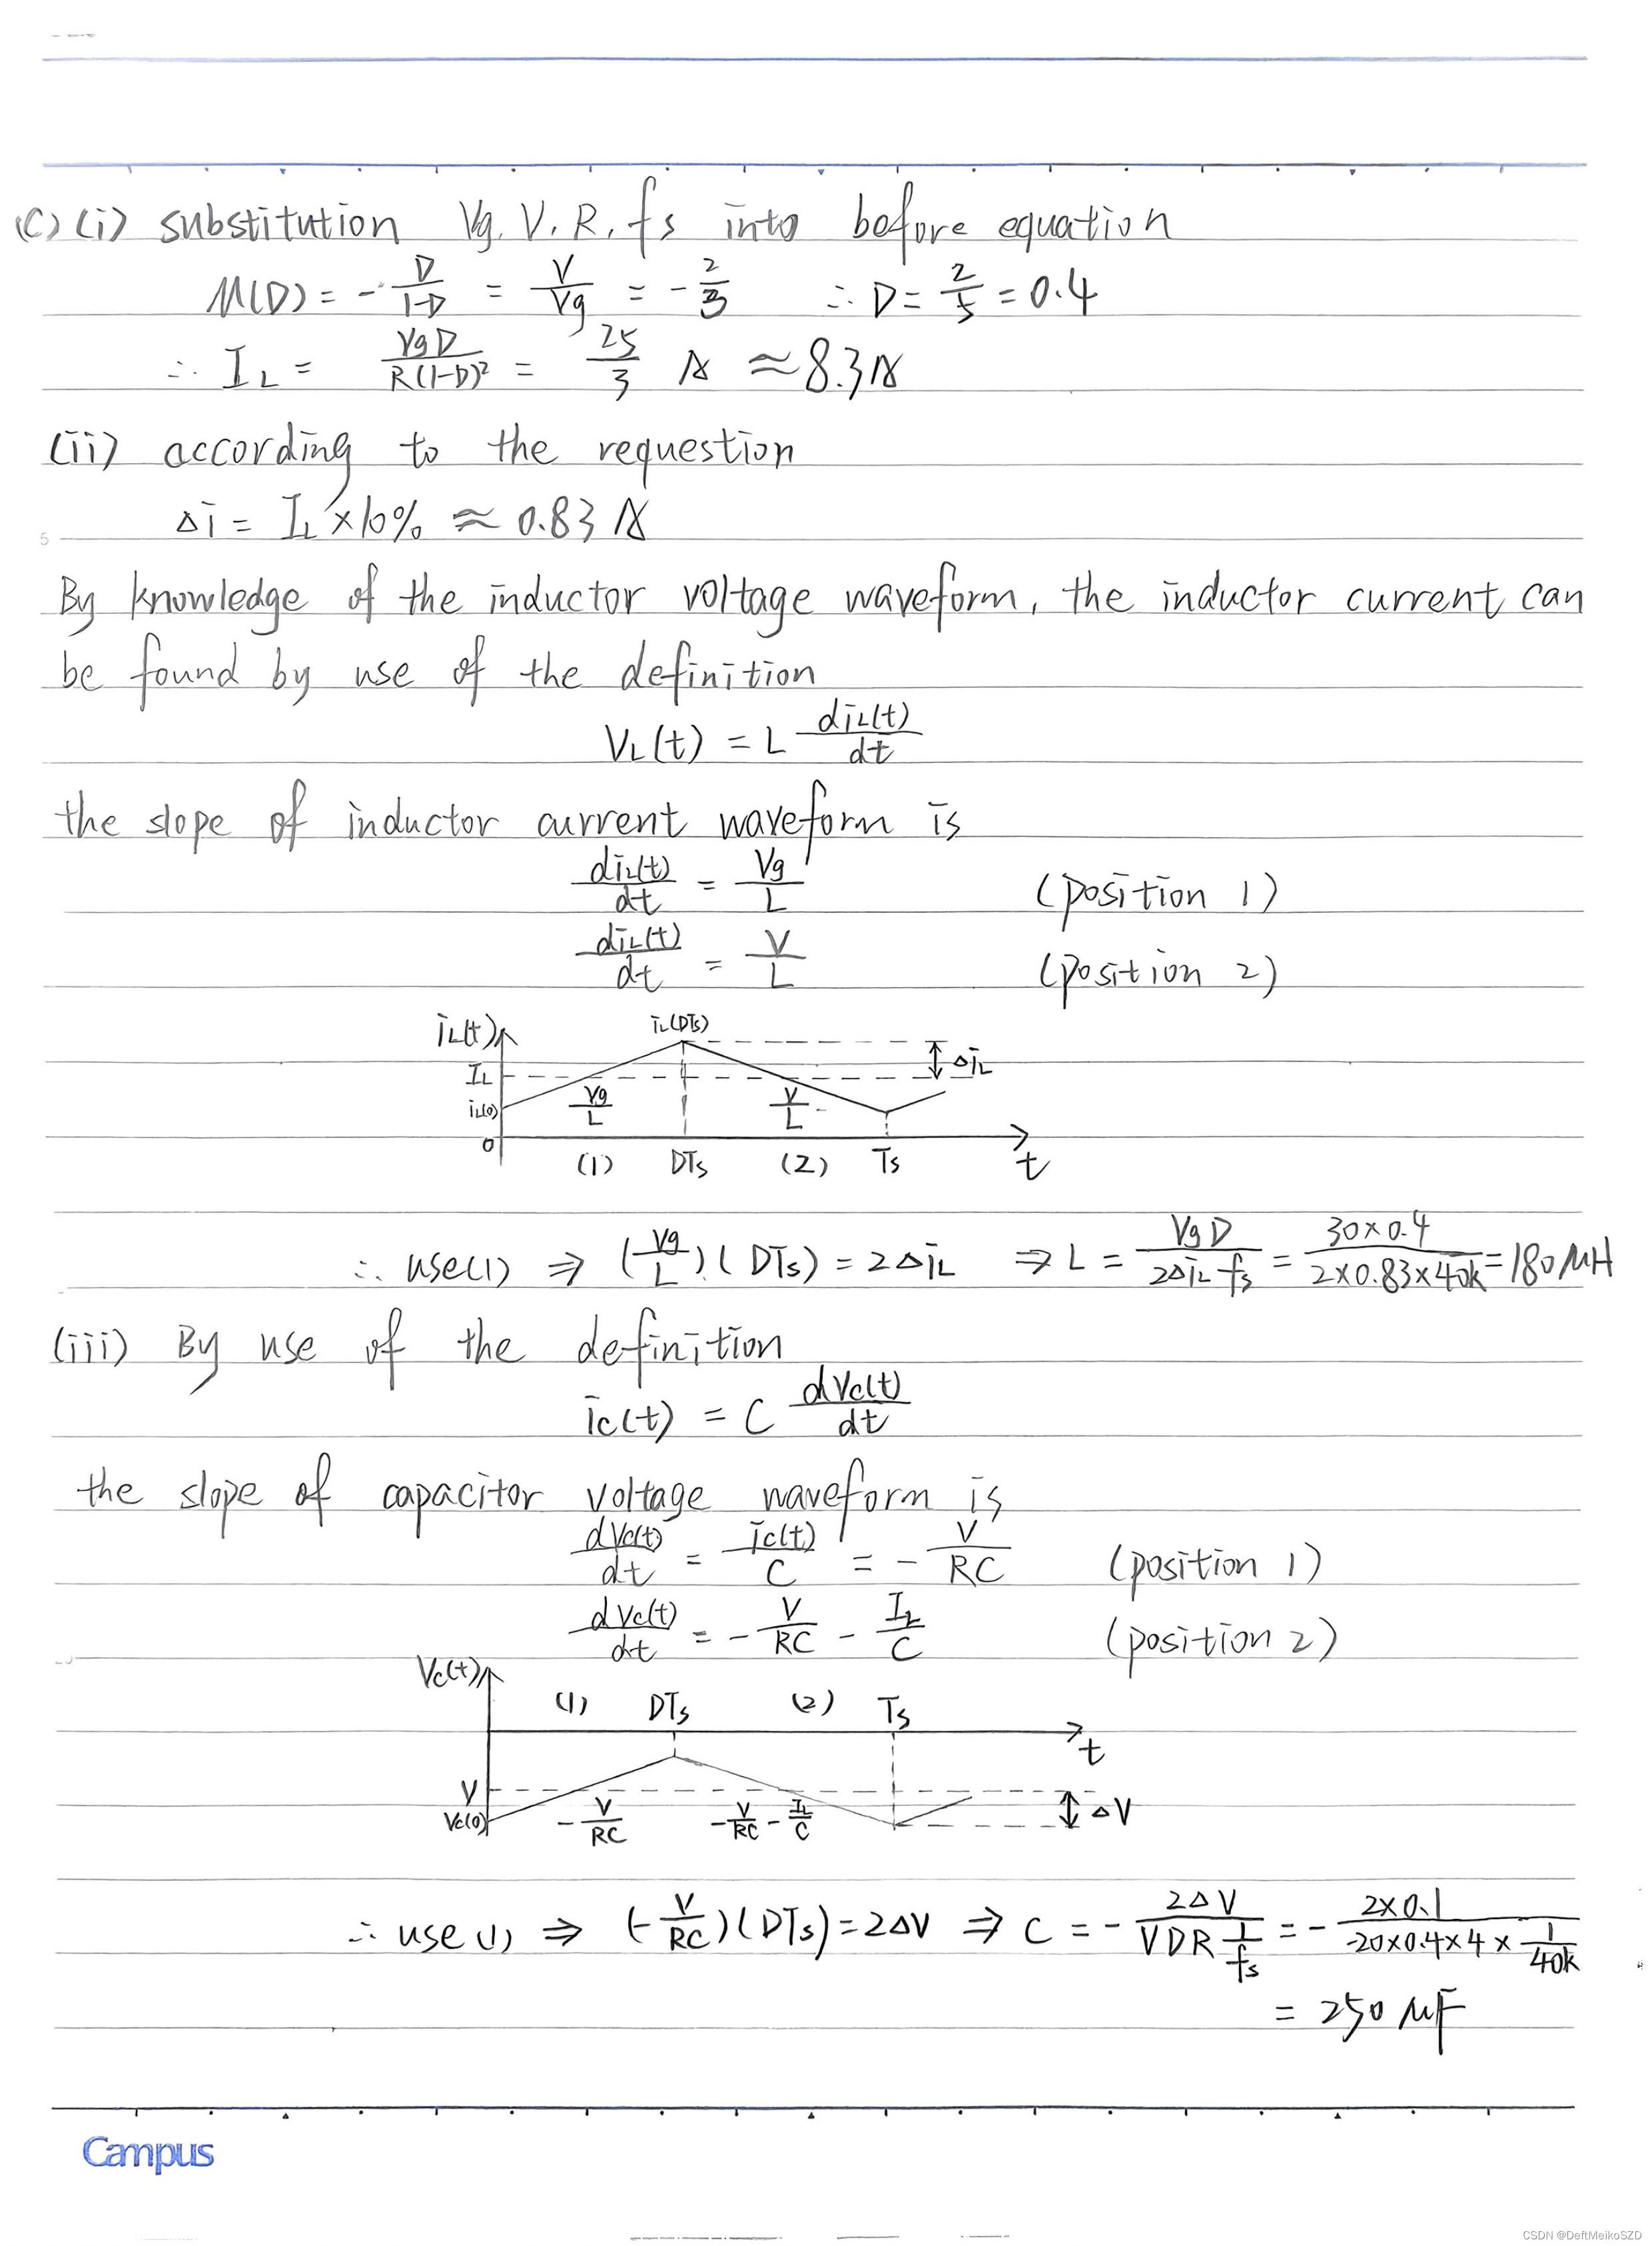 (C) (i) substitution Vg. V. R. fs into before equation
M(D) = - D/(1-D) = V/Vg = - 2/3 ∴ D = 2/5 = 0.4
∴ IL = VgD/(R(1-D)²) = 25/3 A ≈ 8.3A
(ii) according to the requestion
Δi = IL × 10% ≈ 0.83 A
5
By knowledge of the inductor voltage waveform, the inductor current can
be found by use of the definition
VL(t) = L diL(t)/dt
the slope of inductor current waveform is
diL(t)/dt = Vg/L (position 1)
diL(t)/dt = V/L (position 2)
iL(t) iL(DTs)
IL ΔiL
iL(0) Vg/L V/L
0
(1) DTs (2) Ts t
∴ use(1) ⇒ (Vg/L).(DTs) = 2ΔiL ⇒ L = VgD/(2ΔiL fs) = 30×0.4/(2×0.83×40k) = 180 μH
(iii) By use of the definition
ic(t) = C dVc(t)/dt
the slope of capacitor voltage waveform is
dVc(t)/dt = ic(t)/C = - V/RC (position 1)
dVc(t)/dt = - V/RC - IL/C (position 2)
Vc(t)
(1) DTs (2) Ts
t
V
Vc(0) - V/RC - V/RC - IL/C ΔV
∴ use(1) ⇒ (- V/RC)(DTs) = 2ΔV ⇒ C = - 2ΔV/(VDR 1/fs) = - 2×0.1/(-20×0.4×4× 1/40k)
= 250 μF
Campus
CSDN @DeftMeikoSZD